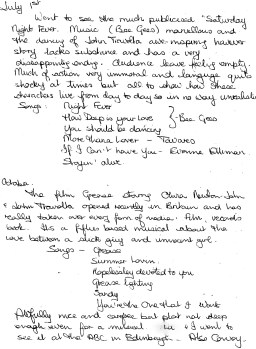 July 1st
Went to see the much publicised "Saturday
Night Fever. Music (Bee Gees) marvellous and
the dancing of John Travolta awe-inspiring however
story lacks substance and has a very
disappointing ending. Audience leave feeling empty.
Much of action very immoral and language quite
shocky at times but all to show how these
characters live from day to day so in no way unrealistic
Songs: Night Fever
How Deep is your Love
You should be dancing
Bee Gees
More than a Lover - Tavares
If I Can't have You - Evonne Elliman
Stayin' alive.
October.
The film Grease starring Olivia Newton-John
& John Travolta opened recently in Britain and has
really taken over every form of media. Film, records
book. It's a fifties based musical about the
love between a slick guy and innocent girl.
Songs - Grease
Summer Lovin.
Hopelessley devoted to you
Grease Lighting
Sandy
You're the One that I Want
nice and but plot not deep
enough even for a musical. I went to
see it at the ABC in Edinburgh. Also Conway.